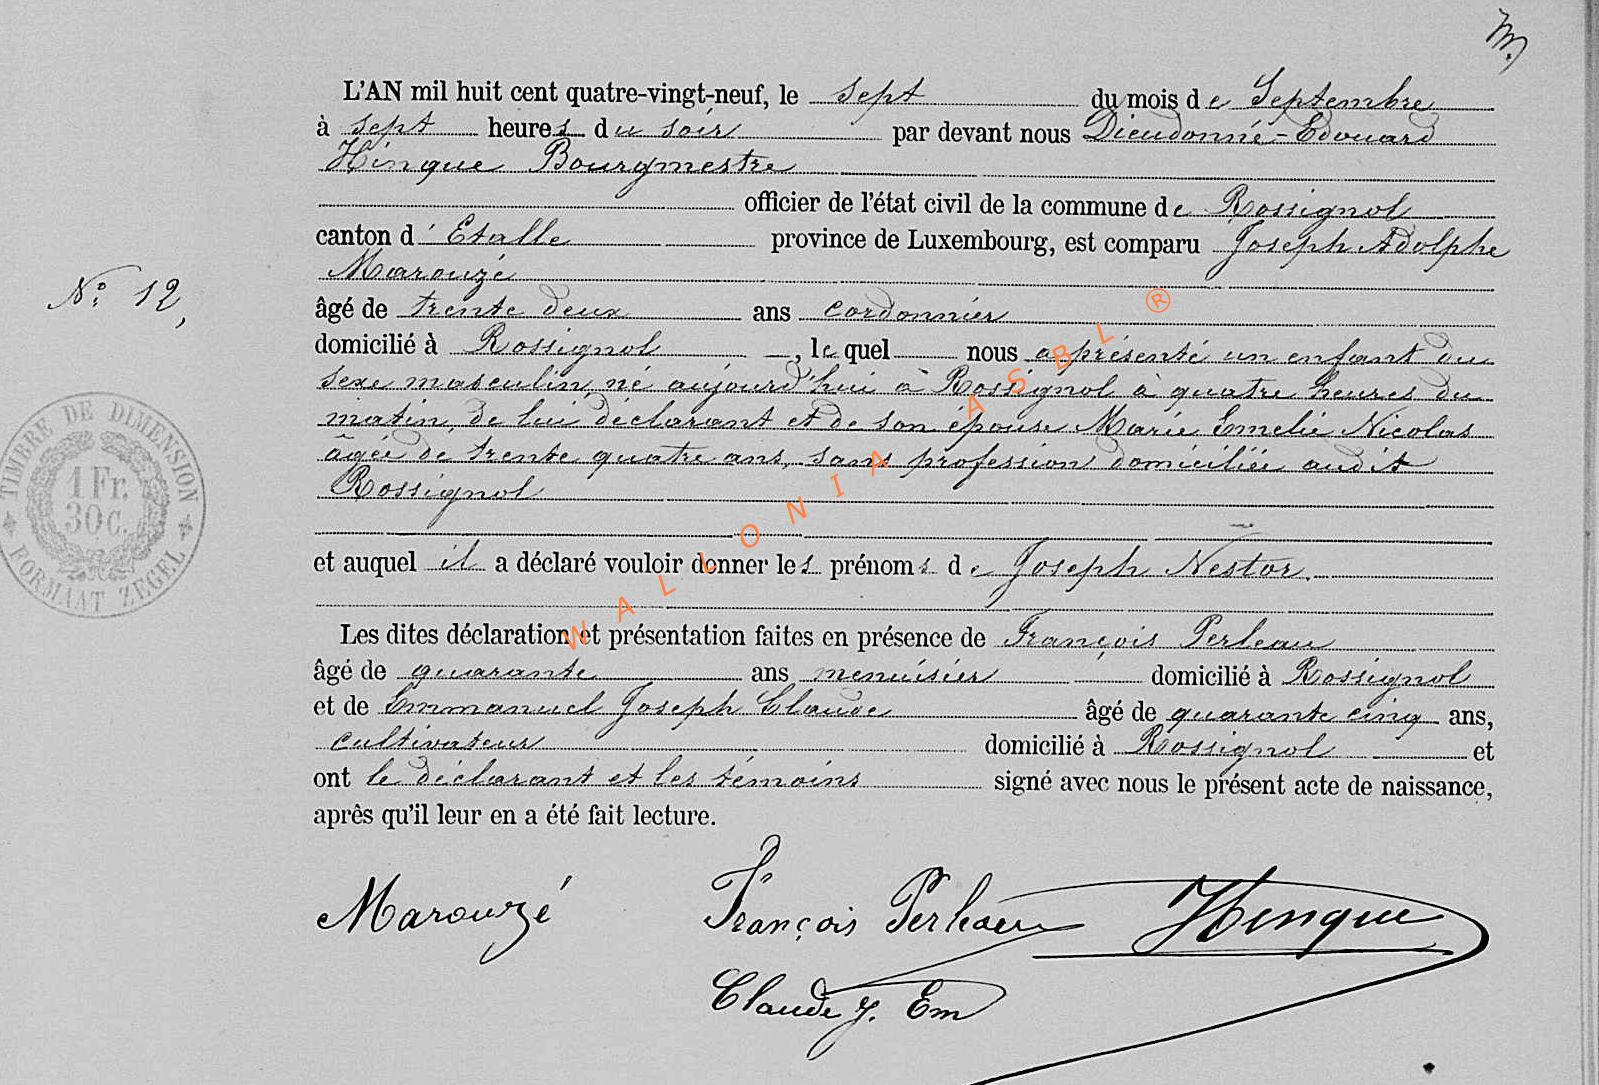 L'AN mil huit cent quatre-vingt-neuf, le sept du mois de Septembre
à sept heures du soir par devant nous Dieudonné-Edouard
Hinque Bourgmestre
officier de l'état civil de la commune de Rossignol
canton d'Etalle province de Luxembourg, est comparu Joseph Adolphe
Marouzé
N° 12,
âgé de trente deux ans cordonnier
domicilié à Rossignol —, lequel nous a présenté un enfant du
sexe masculin, né aujourd'hui à Rossignol à quatre heures du
matin, de lui déclarant et de son épouse Marie Emelie Nicolas
âgée de trente quatre ans, sans profession domiciliée audit
Rossignol
et auquel il a déclaré vouloir donner les prénoms de Joseph Nestor.
Les dites déclaration et présentation faites en présence de François Perleau
âgé de quarante ans menuisier domicilié à Rossignol
et de Emmanuel Joseph Claude âgé de quarante cinq ans,
cultivateur domicilié à Rossignol et
ont le déclarant et les témoins signé avec nous le présent acte de naissance,
après qu'il leur en a été fait lecture.
Marouzé François Perleau Hinque
Claude J. Em
TIMBRE DE DIMENSION
1 Fr.
30 C.
FORMAAT ZEGEL
WALLONIA ASBL ®